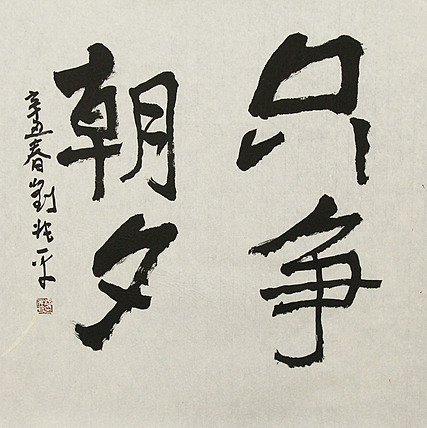 只争
朝夕
辛丑春刘兆平